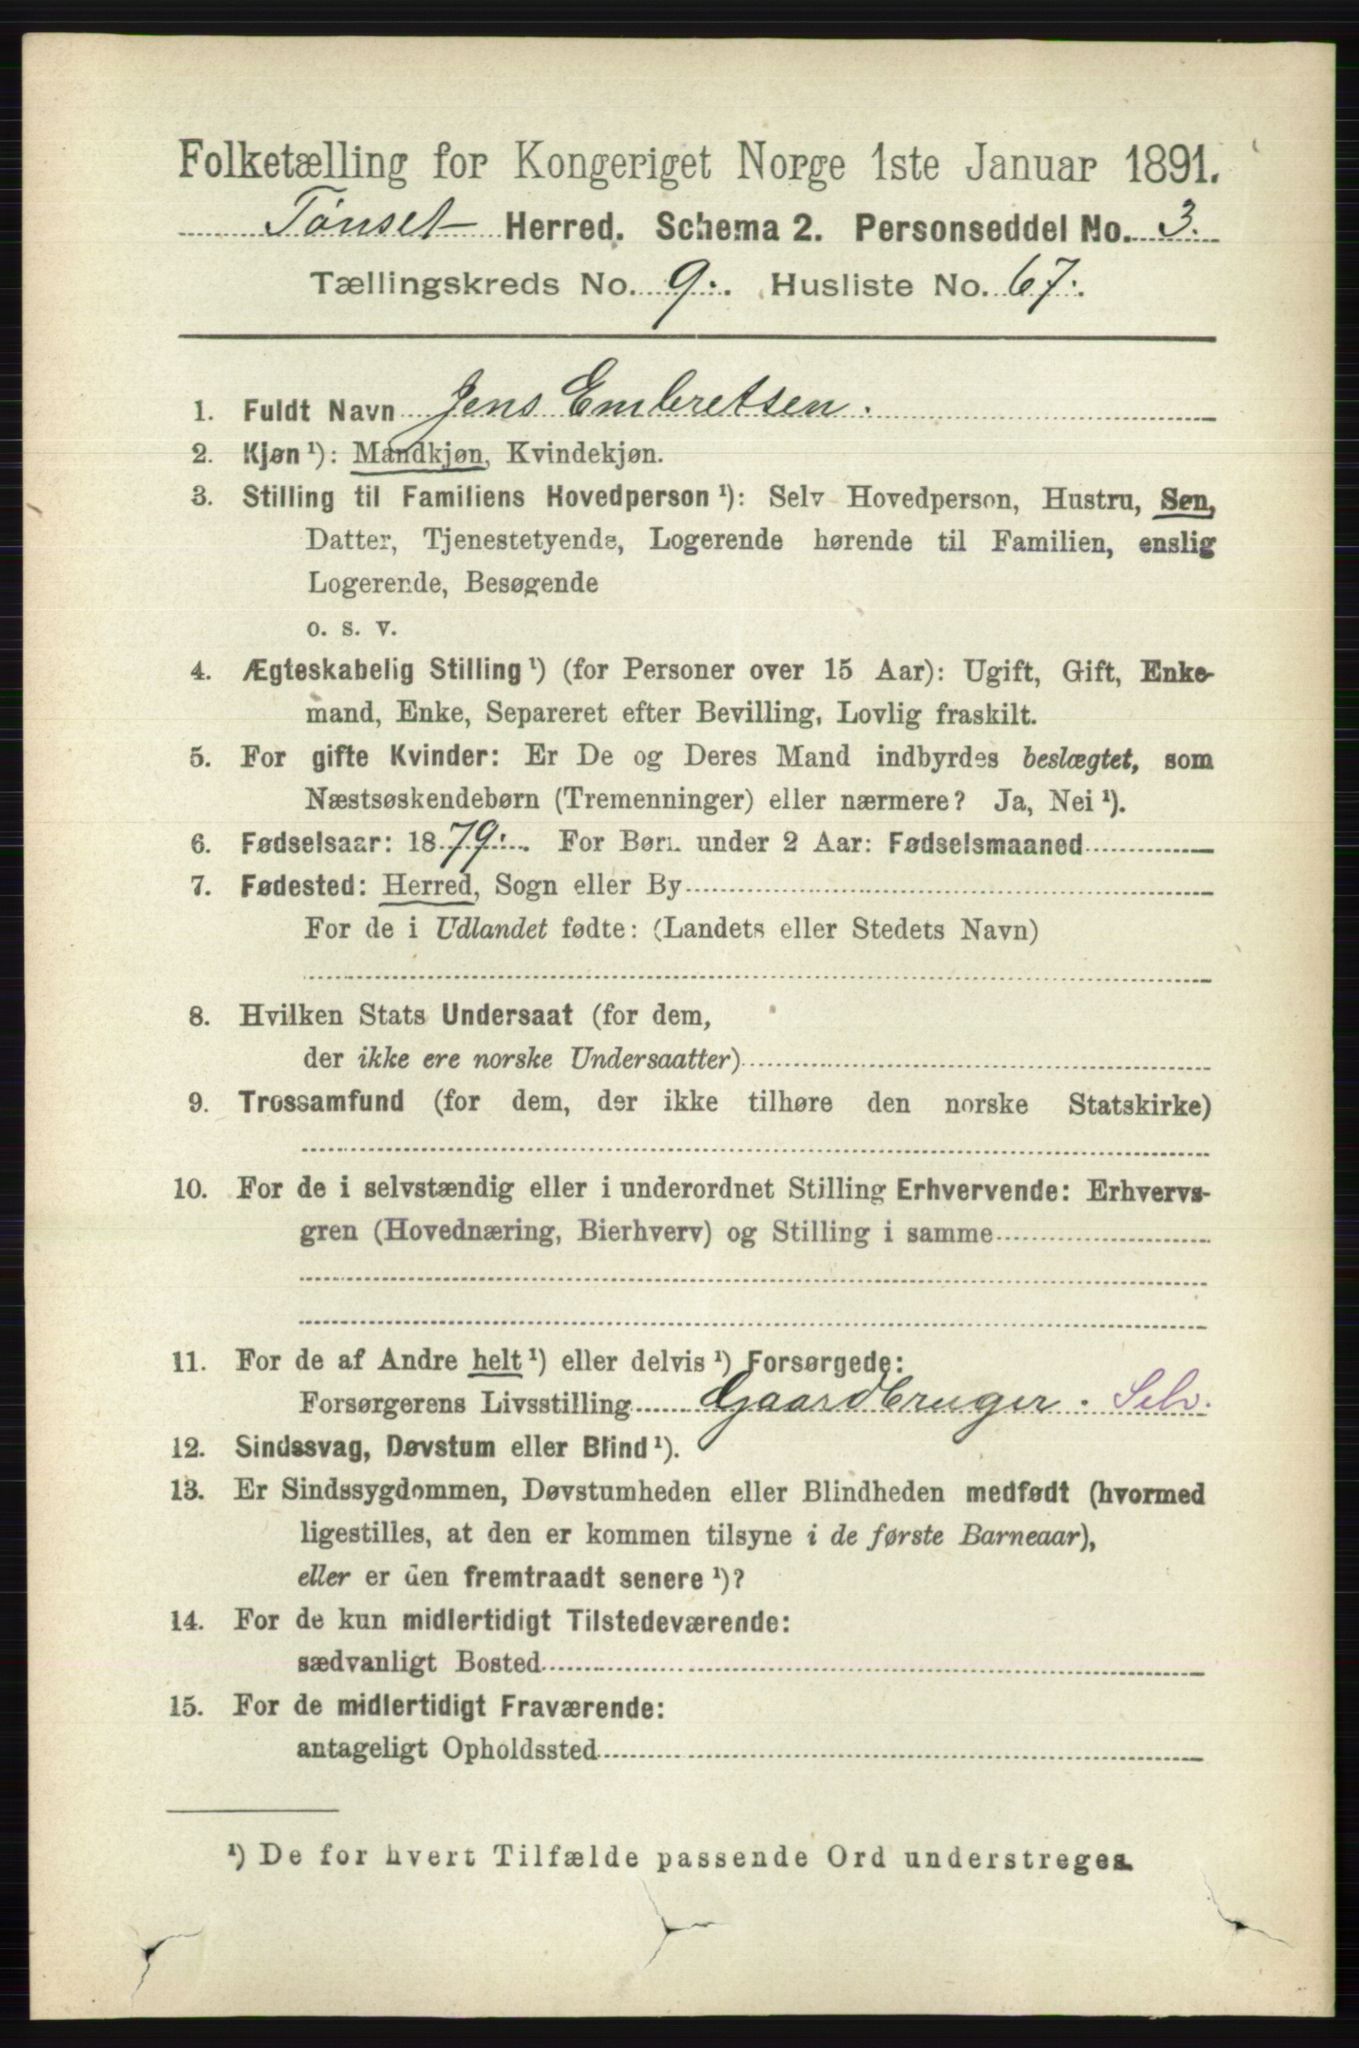 Folketælling for Kongeriget Norge 1ste Januar 1891.
Tønset Herred. Schema 2. Personseddel No. 3.
Tællingskreds No. 9. Husliste No. 67.
1. Fuldt Navn Jens Embretsen.
2. Kjøn¹): Mandkjøn, Kvindekjøn.
3. Stilling til Familiens Hovedperson¹): Selv Hovedperson, Hustru, Søn,
Datter, Tjenestetyende, Logerende hørende til Familien, enslig
Logerende, Besøgende
o. s. v.
4. Ægteskabelig Stilling¹) (for Personer over 15 Aar): Ugift, Gift, Enke-
mand, Enke, Separeret efter Bevilling, Lovlig fraskilt.
5. For gifte Kvinder: Er De og Deres Mand indbyrdes beslægtet, som
Næstsøskendebørn (Tremenninger) eller nærmere? Ja, Nei¹).
6. Fødselsaar: 1879. For Børn under 2 Aar: Fødselsmaaned
7. Fødested: Herred, Sogn eller By
For de i Udlandet fødte: (Landets eller Stedets Navn)
8. Hvilken Stats Undersaat (for dem,
der ikke ere norske Undersaatter)
9. Trossamfund (for dem, der ikke tilhøre den norske Statskirke)
10. For de i selvstændig eller i underordnet Stilling Erhvervende: Erhvervs-
gren (Hovednæring, Bierhverv) og Stilling i samme
11. For de af Andre helt¹) eller delvis¹) Forsørgede:
Forsørgerens Livsstilling Gaardbruger. Selv.
12. Sindssvag, Døvstum eller Blind¹).
13. Er Sindssygdommen, Døvstumheden eller Blindheden medfødt (hvormed
ligestilles, at den er kommen tilsyne i de første Barneaar),
eller er den fremtraadt senere¹)?
14. For de kun midlertidigt Tilstedeværende:
sædvanligt Bosted
15. For de midlertidigt Fraværende:
antageligt Opholdssted
¹) De for hvert Tilfælde passende Ord understreges.